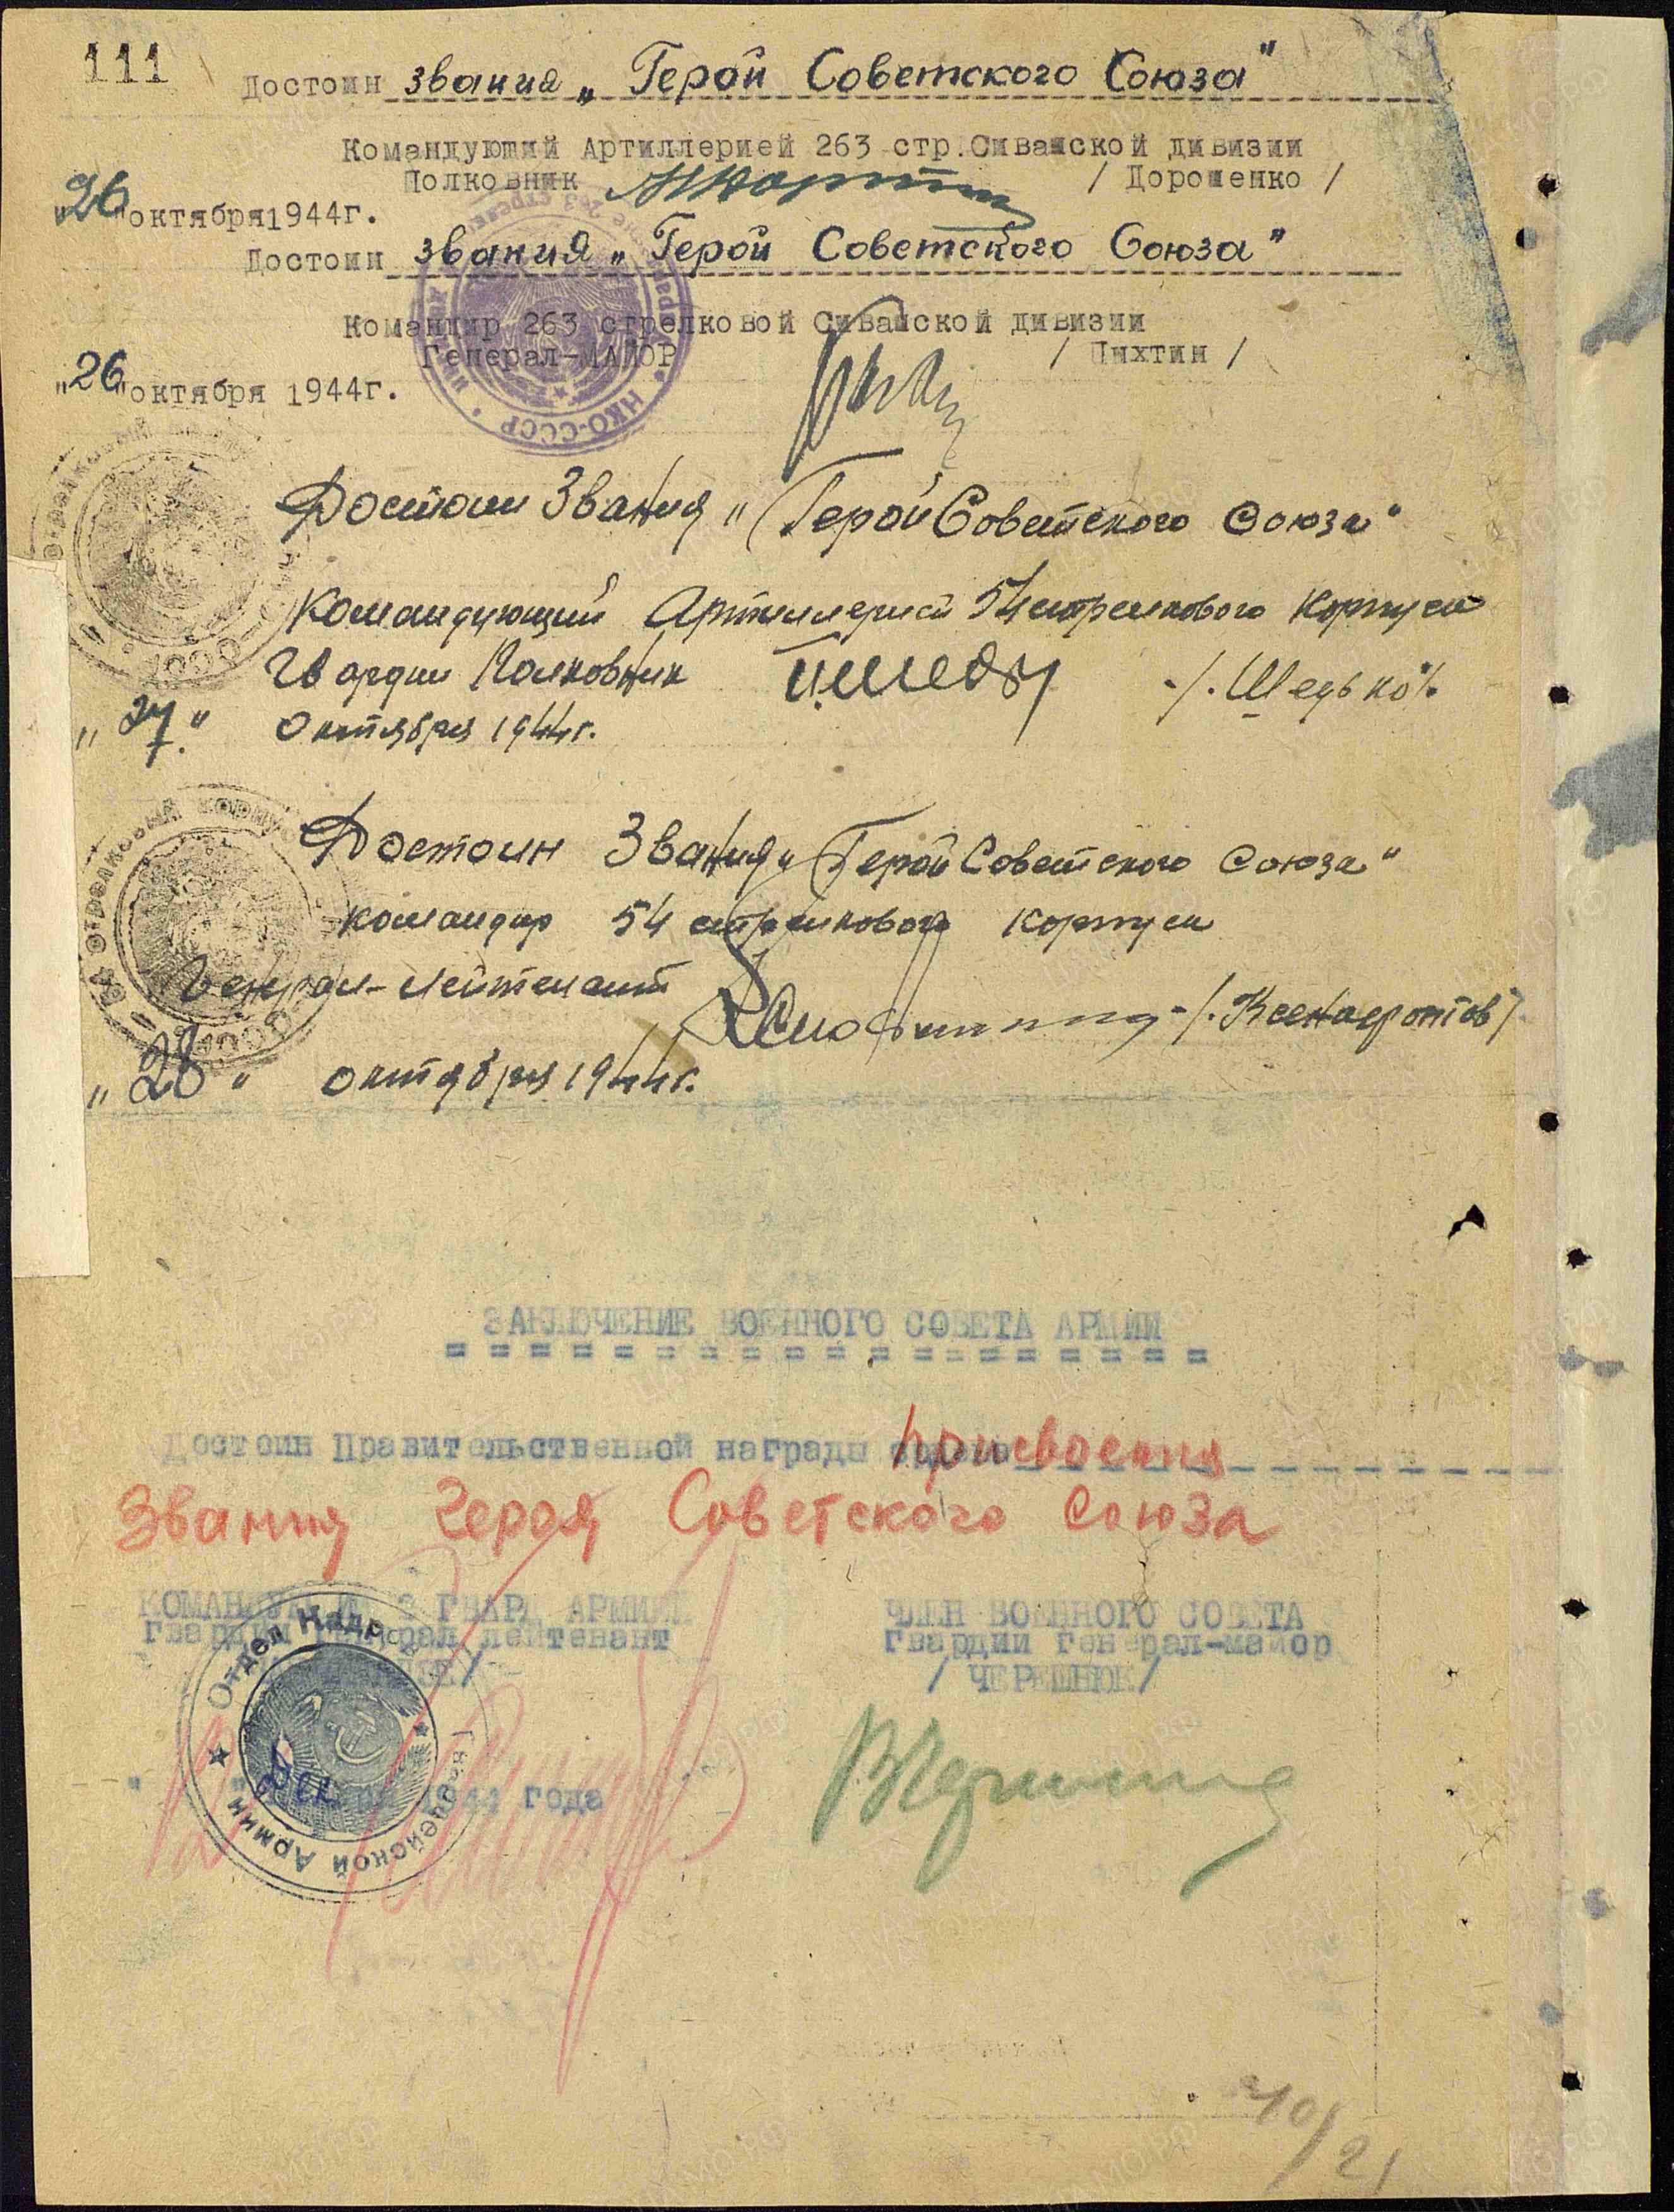 111
Достоин звания „Герой Советского Союза"
Командующий Артиллерией 263 стр. Сивашской дивизии
Полковник / Дорошенко /
"26" октября 1944г.
Достоин звания „Герой Советского Союза"
Командир 263 стрелковой Сивашской дивизии
Генерал-МАЙОР / Пыхтин /
"26" октября 1944г.
НКО-СССР
Достоин Звания „Герой Советского Союза"
Командующий Артиллерией 54 стрелкового корпуса
Гвардии Полковник /. Шедько /.
"27." октября 1944г.
Достоин Звания „Герой Советского Союза"
Командир 54 стрелкового корпуса
Генерал-Лейтенант /. Ксенофонтов /.
"28" октября 1944г.
ЗАКЛЮЧЕНИЕ ВОЕННОГО СОВЕТА АРМИИ
Достоин Правительственной награды присвоения
Звания Героя Советского Союза
КОМАНДУЮЩИЙ 2 ГВАРД АРМИЕЙ
Гвардии Генерал лейтенант
ЧЛЕН ВОЕННОГО СОВЕТА
Гвардии генерал-майор
/ ЧЕРЕШНЮК /
Отдел Кадров Гвардейской Армии
1944 года
21